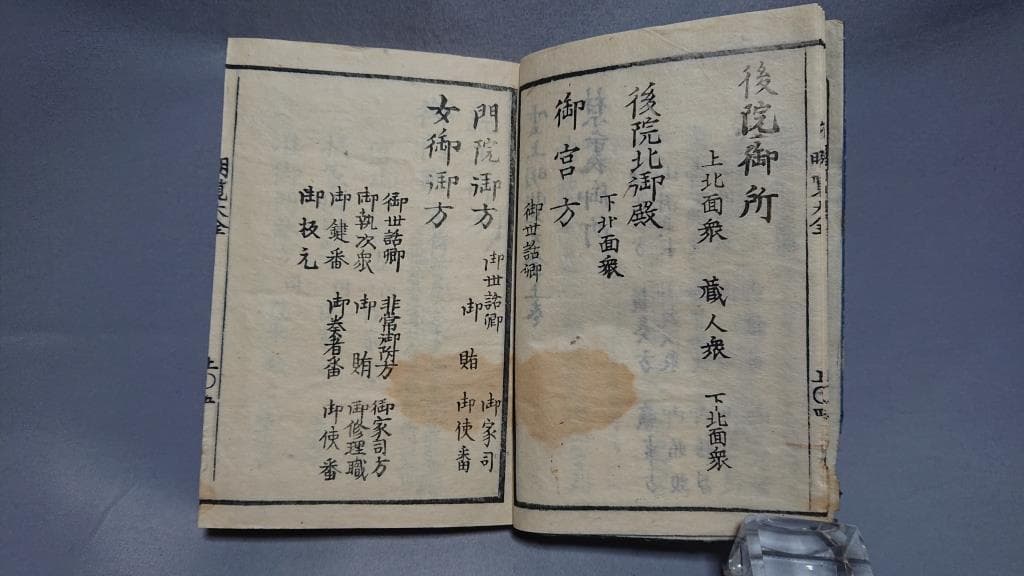 後院御所
上北面衆 蔵人衆 下北面衆
後院北御殿
下北面衆
御宮方
御世話卿
門院御方
御世話卿 御家司
御賄 御使番
女御御方
御世話卿 非常御附方 御家司方
御執次衆 御賄 御修理職
御鍵番 御奏者番 御使番
御板元
明覧大全
上〇四
明覧大全
上〇五